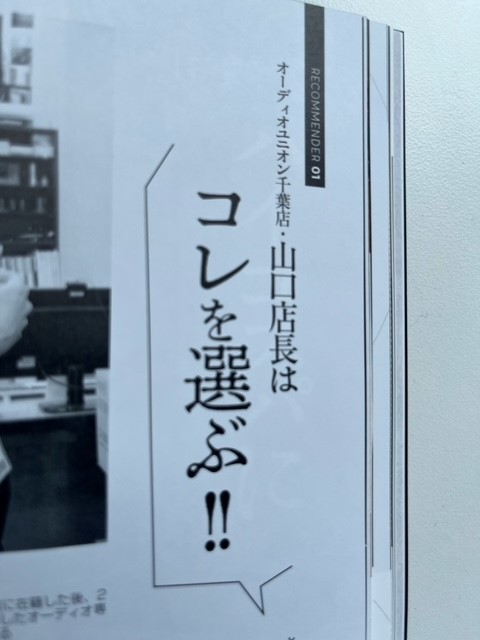 RECOMMENDER 01
オーディオユニオン千葉店・山口店長は
コレを選ぶ!!
に在籍した後、2
したオーディオ専
る